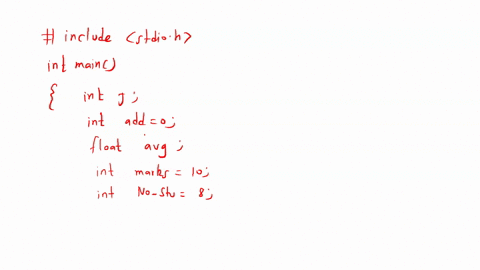 # include <stdio.h>
int main()
{ int j;
int add=0;
float avg ;
int marks = 10;
int No-Stu = 8;